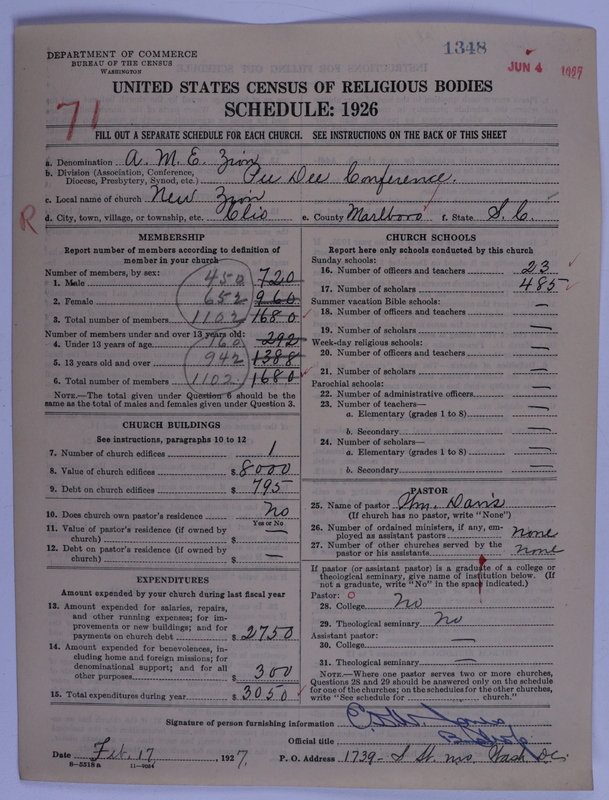 1348
JUN 4 1927
DEPARTMENT OF COMMERCE
BUREAU OF THE CENSUS
WASHINGTON
UNITED STATES CENSUS OF RELIGIOUS BODIES
SCHEDULE: 1926
71
FILL OUT A SEPARATE SCHEDULE FOR EACH CHURCH. SEE INSTRUCTIONS ON THE BACK OF THIS SHEET
a. Denomination A. M. E. Zion
b. Division (Association, Conference, Diocese, Presbytery, Synod, etc.) Pee Dee Conference.
c. Local name of church New Zion
R
d. City, town, village, or township, etc. Clio e. County Marlboro f. State S. C.
MEMBERSHIP
Report number of members according to definition of
member in your church
Number of members, by sex:
1. Male 450 720
2. Female 652 960
3. Total number of members 1102 1680
Number of members under and over 13 years old:
4. Under 13 years of age 160 292
5. 13 years old and over 942 1388
6. Total number of members 1102 1680
NOTE.—The total given under Question 6 should be the
same as the total of males and females given under Question 3.
CHURCH BUILDINGS
See instructions, paragraphs 10 to 12
7. Number of church edifices 1
8. Value of church edifices $ 8000
9. Debt on church edifices $ 795
10. Does church own pastor's residence No
Yes or No
11. Value of pastor's residence (if owned by
church) $ —
12. Debt on pastor's residence (if owned by
church) $ —
EXPENDITURES
Amount expended by your church during last fiscal year
13. Amount expended for salaries, repairs,
and other running expenses; for im-
provements or new buildings; and for
payments on church debt $ 2750
14. Amount expended for benevolences, in-
cluding home and foreign missions; for
denominational support; and for all
other purposes $ 300
15. Total expenditures during year $ 3050
CHURCH SCHOOLS
Report here only schools conducted by this church
Sunday schools:
16. Number of officers and teachers 23
17. Number of scholars 485
Summer vacation Bible schools:
18. Number of officers and teachers —
19. Number of scholars —
Week-day religious schools:
20. Number of officers and teachers —
21. Number of scholars —
Parochial schools:
22. Number of administrative officers —
23. Number of teachers—
a. Elementary (grades 1 to 8) —
b. Secondary —
24. Number of scholars—
a. Elementary (grades 1 to 8) —
b. Secondary —
PASTOR
25. Name of pastor Wm. Davis
(If church has no pastor, write "None")
26. Number of ordained ministers, if any, em-
ployed as assistant pastors none
27. Number of other churches served by the
pastor or his assistants none
If pastor (or assistant pastor) is a graduate of a college or
theological seminary, give name of institution below. (If
not a graduate, write "No" in the space indicated.)
Pastor:
28. College No
29. Theological seminary No
Assistant pastor:
30. College —
31. Theological seminary —
NOTE.—Where one pastor serves two or more churches,
Questions 28 and 29 should be answered only on the schedule
for one of the churches; on the schedules for the other churches,
write "See schedule for church."
Signature of person furnishing information Jones
Official title Bishop
Date Feb. 17 1927. P. O. Address 1739- S St. nw. Wash. D.C.
8-5518a 11-9034